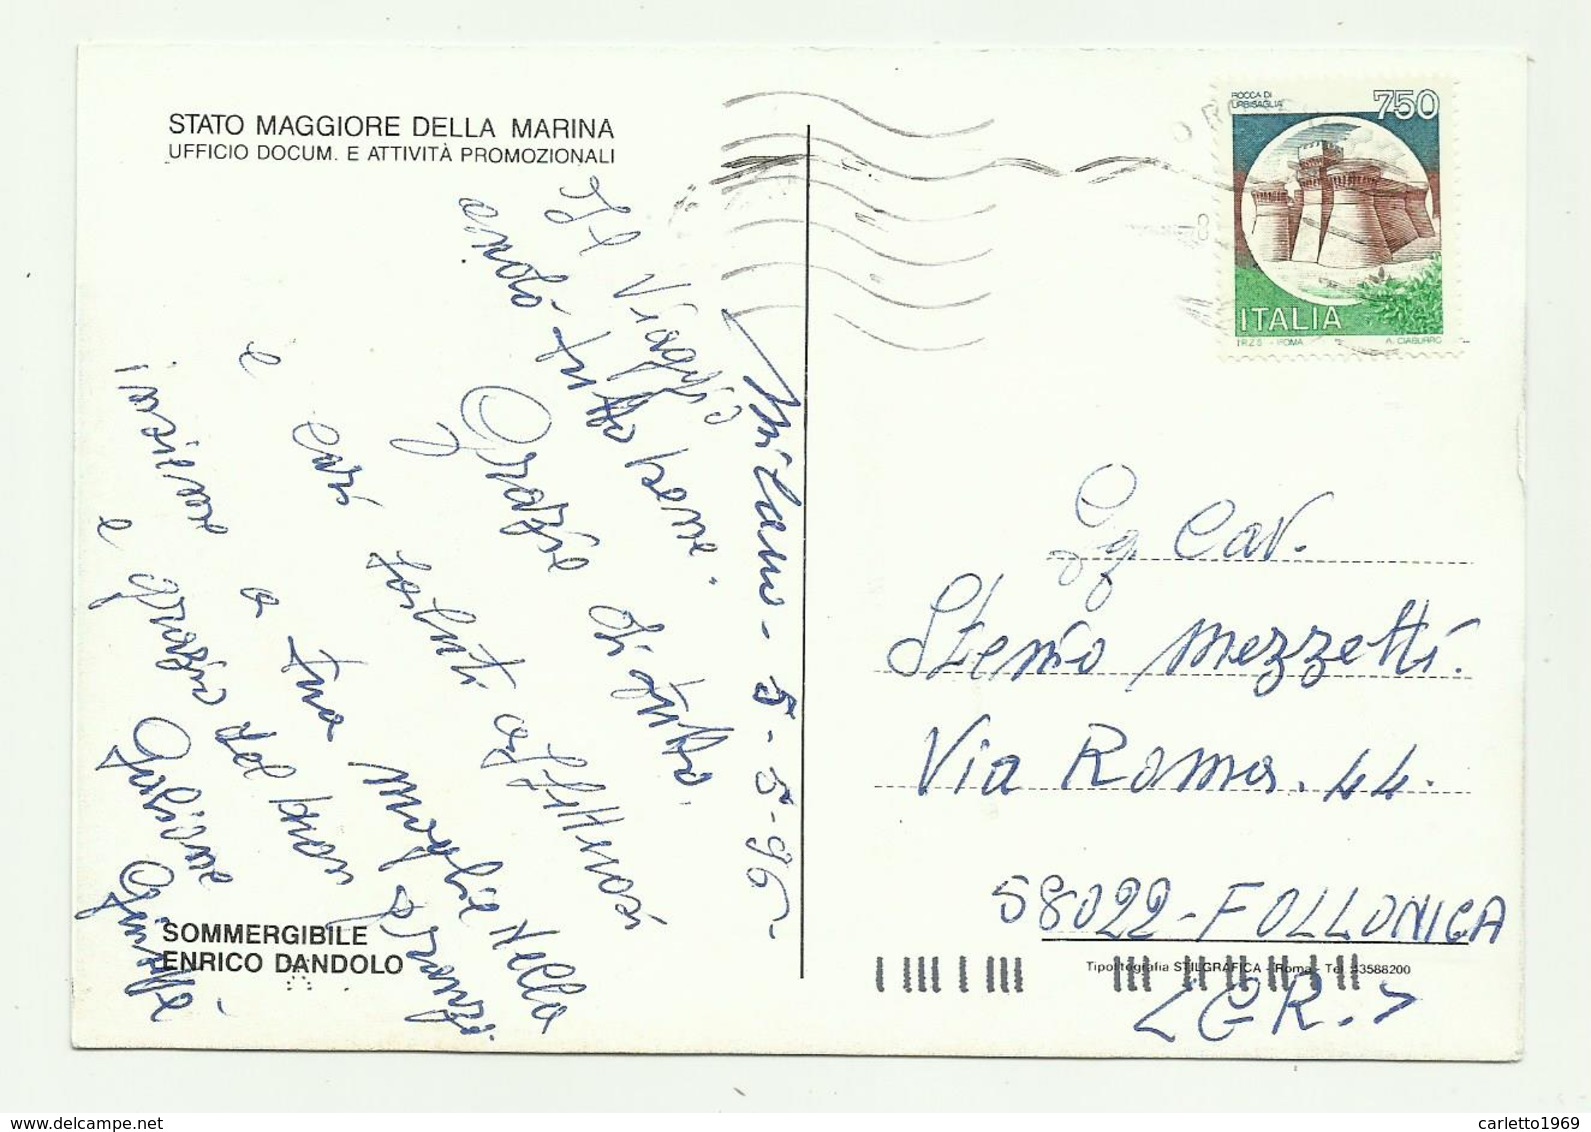 STATO MAGGIORE DELLA MARINA
UFFICIO DOCUM. E ATTIVITÀ PROMOZIONALI
Milano - 5 - 5 - 96 -
Il Viaggio
andò tutto bene.
Grazie di tutto.
e cari saluti affettuosi
insieme a tua moglie Nella
e grazie del buon pranzo.
SOMMERGIBILE
ENRICO DANDOLO
ROCCA DI
URBISAGLIA
750
ITALIA
I.P.Z.S. - ROMA
A. CIABURRO
8
Sg Cav.
Stenio Mezzetti.
Via Roma. 44.
58022 - FOLLONICA
Tipolitografia STILGRAFICA - Roma - Tel. 43588200
< GR. >
carletto1969